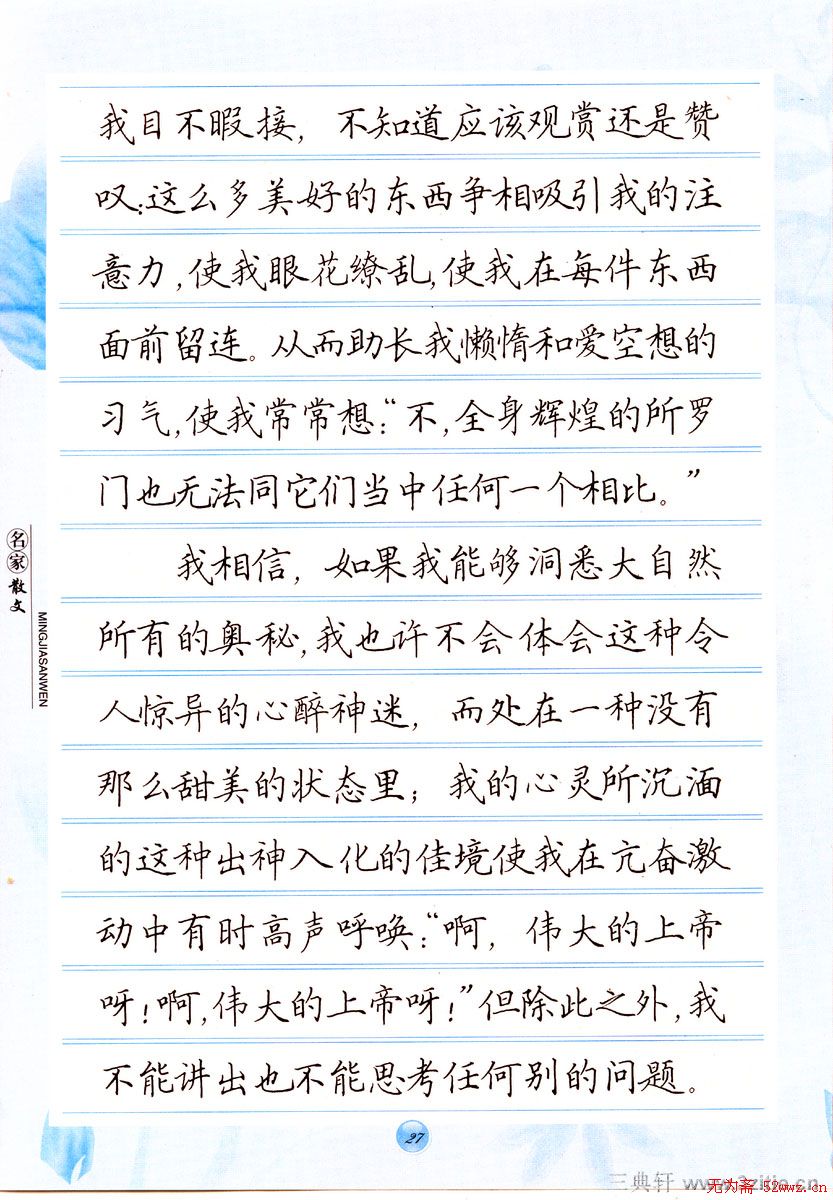 我目不暇接，不知道应该观赏还是赞
叹:这么多美好的东西争相吸引我的注
意力,使我眼花缭乱,使我在每件东西
面前留连。从而助长我懒惰和爱空想的
习气,使我常常想:“不,全身辉煌的所罗
门也无法同它们当中任何一个相比。”
我相信，如果我能够洞悉大自然
所有的奥秘,我也许不会体会这种令
人惊异的心醉神迷，而处在一种没有
那么甜美的状态里；我的心灵所沉湎
的这种出神入化的佳境使我在亢奋激
动中有时高声呼唤:“啊，伟大的上帝
呀!啊,伟大的上帝呀!”但除此之外,我
不能讲出也不能思考任何别的问题。
名家散文
MINGJIASANWEN
27
三典轩
无为斋 52wwz.cn